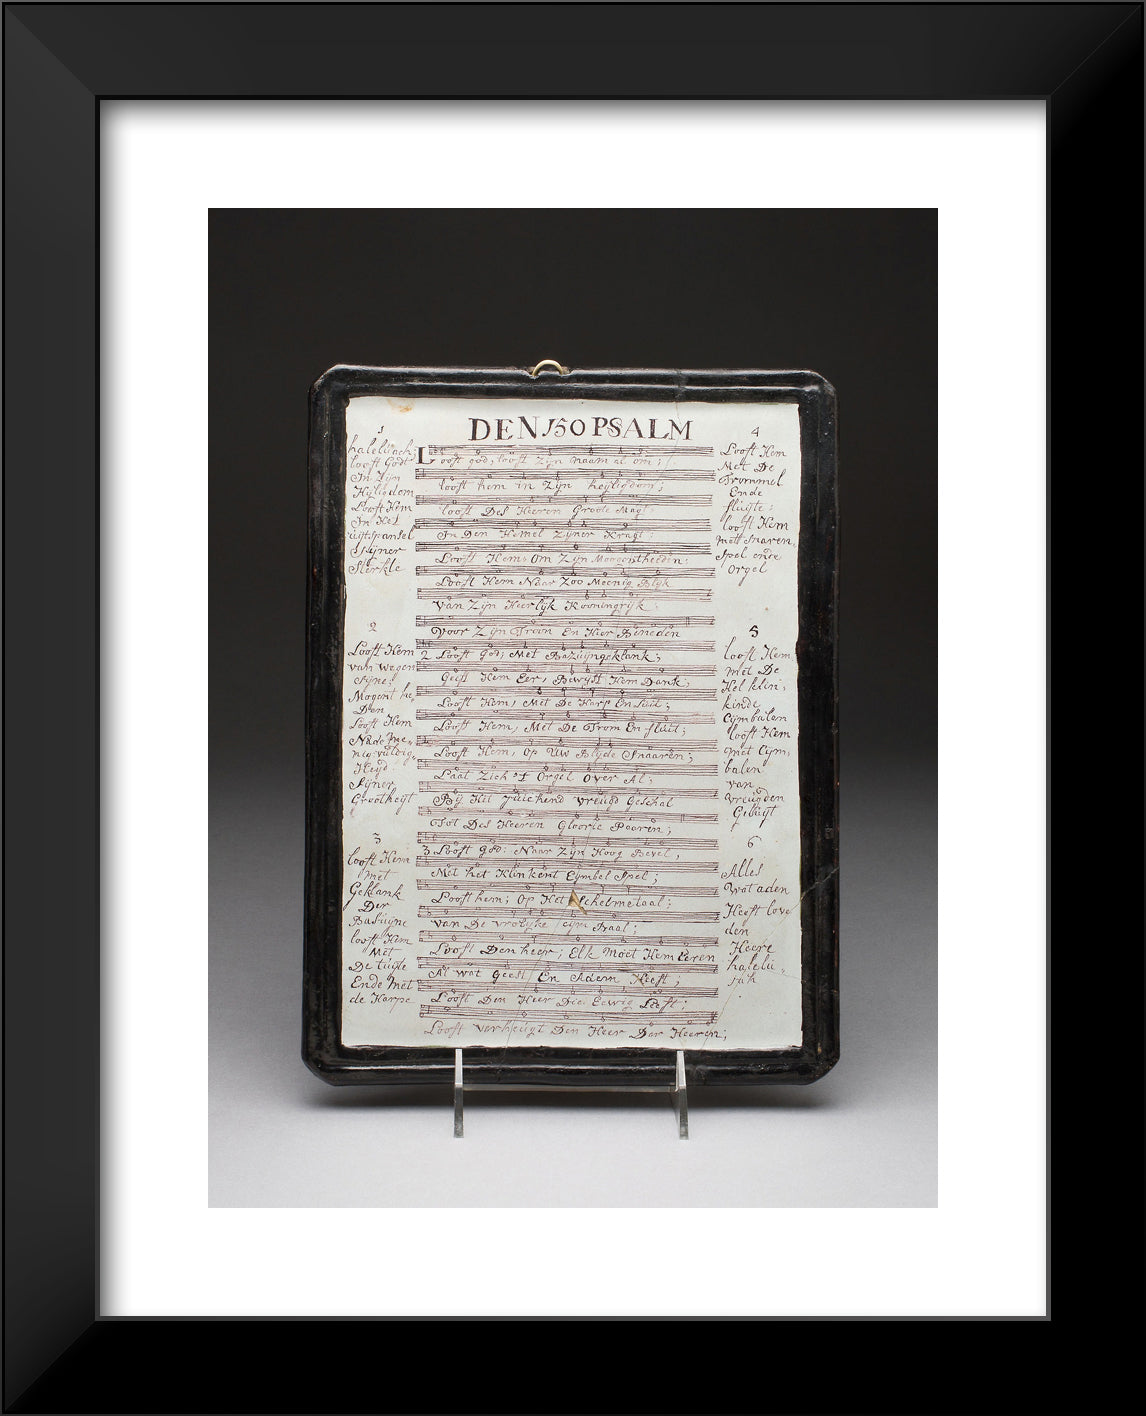 DEN 150 PSALM
1
haleluach
looft Godt
In Zyn
Hyligdom
Looft Hem
In Het
uijtspansel
syner
Sterkte
2
Looft Hem
van wegen
syne
Mogent he,
Den
Looft Hem
Na de me,
nig vuldig,
Heyd
syner
Grootheyt
3
looft Hem
met
Geklank
Der
Basuyne
looft Hem
Met
De luyte
Ende Met
de Harpe
Looft god, looft Zyn naam al om;
looft hem in Zyn heyligdom;
looft Des Heeren Groote Magt
In Den Hemel Zyner Kragt;
Looft Hem, Om Zyn Moogentheeden;
Looft Hem Naar Zoo Meenig Blyk
Van Zyn Heerlyk Kooningryk
Voor Zyn Troon En Hier Beneden
2 Looft God, Met Bazuyngeklank;
Geeft Hem Eer, Bewyst Hem Dank;
Looft Hem, Met De Harp En Luit;
Looft Hem, Met De Trom En fluit;
Looft Hem, Op Uw Blyde Snaaren;
Laat Zich 't Orgel Over Al;
By Het Juichend vreugd Geschal
Tot Des Heeren Gloorie Paaren;
3 Looft god: Naar Zyn Hoog Bevel,
Met het Klinkent Cymbel Spel;
Looft hem; Op Het Schelmetaal;
van De vrolyke cymbaal;
Looft Den heer; Elk Moet Hem Eeren
Al wat Geest En Adem Heeft;
Looft Den Heer Die Eewig Leeft;
Looft verheugt Den Heer Der Heeren;
4
Looft Hem
Met De
Trommel
Ende
fluyte;
looft Hem
mett snaren
spel ende
Orgel
5
looft Hem
met De
Hel klin,
kinde
Cymbalen
looft Hem
met Cym,
balen
van
vreugden
Geluyt
6
Alles
Wat aden
Heeft love
den
Heere
halelu,
jah